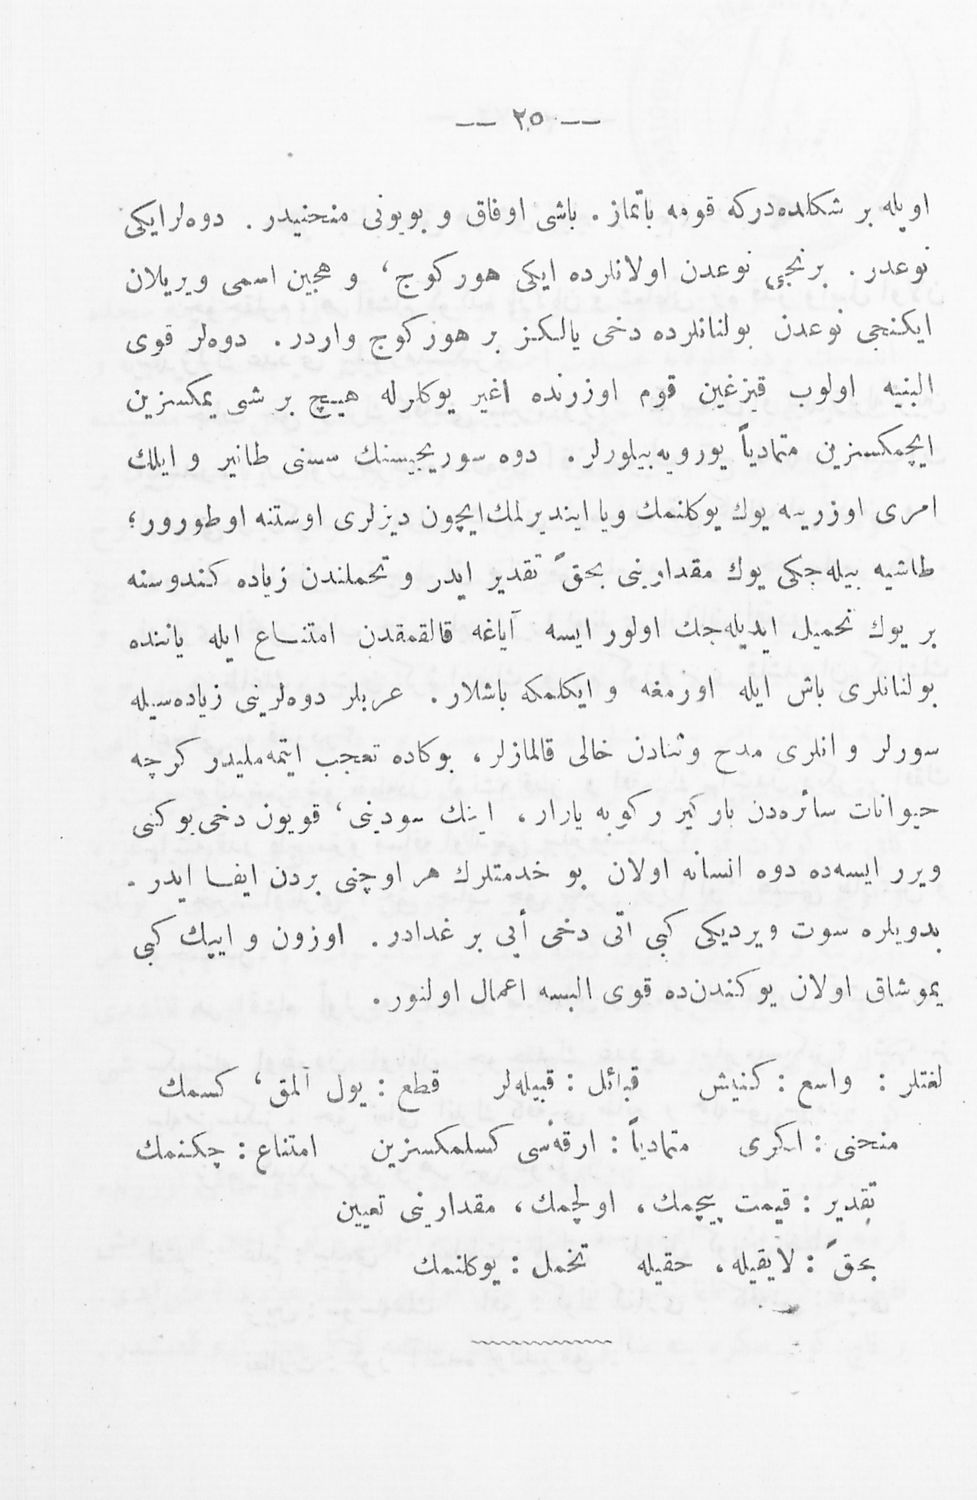 -- ٢٥ --
اويله بر شكلده‌دركه قومه باتماز . باشى اوفاق و بويونى منحنيدر . دوه‌لر ايكى
نوعدر . برنجى نوعدن اولانلرده ايكى هوركوج ، و هجين اسمى ويريلان
ايكنجى نوعدن بولنانلرده دخى يالكز بر هوركوج واردر . دوه‌لر قوى
البنيه اولوب قيزغين قوم اوزرنده اغير يوكلرله هيچ بر شى يمكسزين
ايچمكسزين متمادياً يورويه‌بيلورلر . دوه سوريجيسنك سسنى طانير و ايلك
امرى اوزرينه يوك يوكلنمك ويا اينديرلمك ايچون ديزلرى اوستنه اوطورور ؛
طاشيه بيله‌جكى يوك مقدارينى بحقٍ تقدير ايدر و تحملندن زياده كندوسنه
بر يوك تحميل ايديله‌جك اولور ايسه آياغه قالقمقدن امتناع ايله ياننده
بولنانلرى باش ايله اورمغه و ايكلمكه باشلار . عربلر دوه‌لرينى زياده‌سيله
سورلر و انلرى مدح وثنادن خالى قالمازلر ، بوكاده تعجب ايتمه‌مليدر كرچه
حيوانات سائره‌دن باركير ركوبه يارار ، اينك سودينى ، قويون دخى يوكنى
ويرر ايسه‌ده دوه انسانه اولان بو خدمتلرك هر اوچنى بردن ايفا ايدر .
بدويلره سوت ويرديكى كبى اتى دخى أيى بر غدادر . اوزون و ايپك كبى
يموشاق اولان يوكندن‌ده قوى البسه اعمال اولنور .
لغتلر : واسع : كنيش قبائل : قبيله‌لر قطع : يول آلمق ، كسمك
منحنى : اكرى متمادياً : ارقه‌سى كسلمكسزين امتناع : چكنمك
تقدير : قيمت پيچمك ، اولچمك ، مقدارينى تعيين
بحقٍ : لايقيله ، حقيله تحمل : يوكلنمك